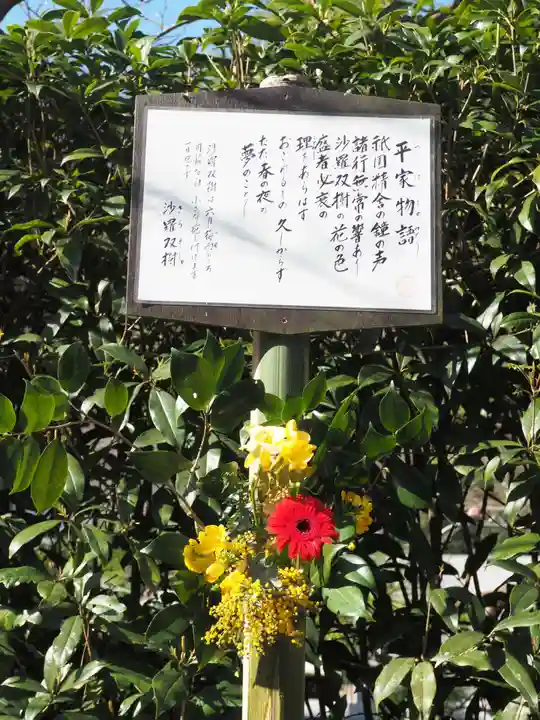 平家物語
祇園精舎の鐘の声
諸行無常の響あり
沙羅双樹の花の色
盛者必衰の
理をあらはす
おごれるもの久しからず
ただ春の夜の
夢のごとし
沙羅双樹は六月
沙羅双樹